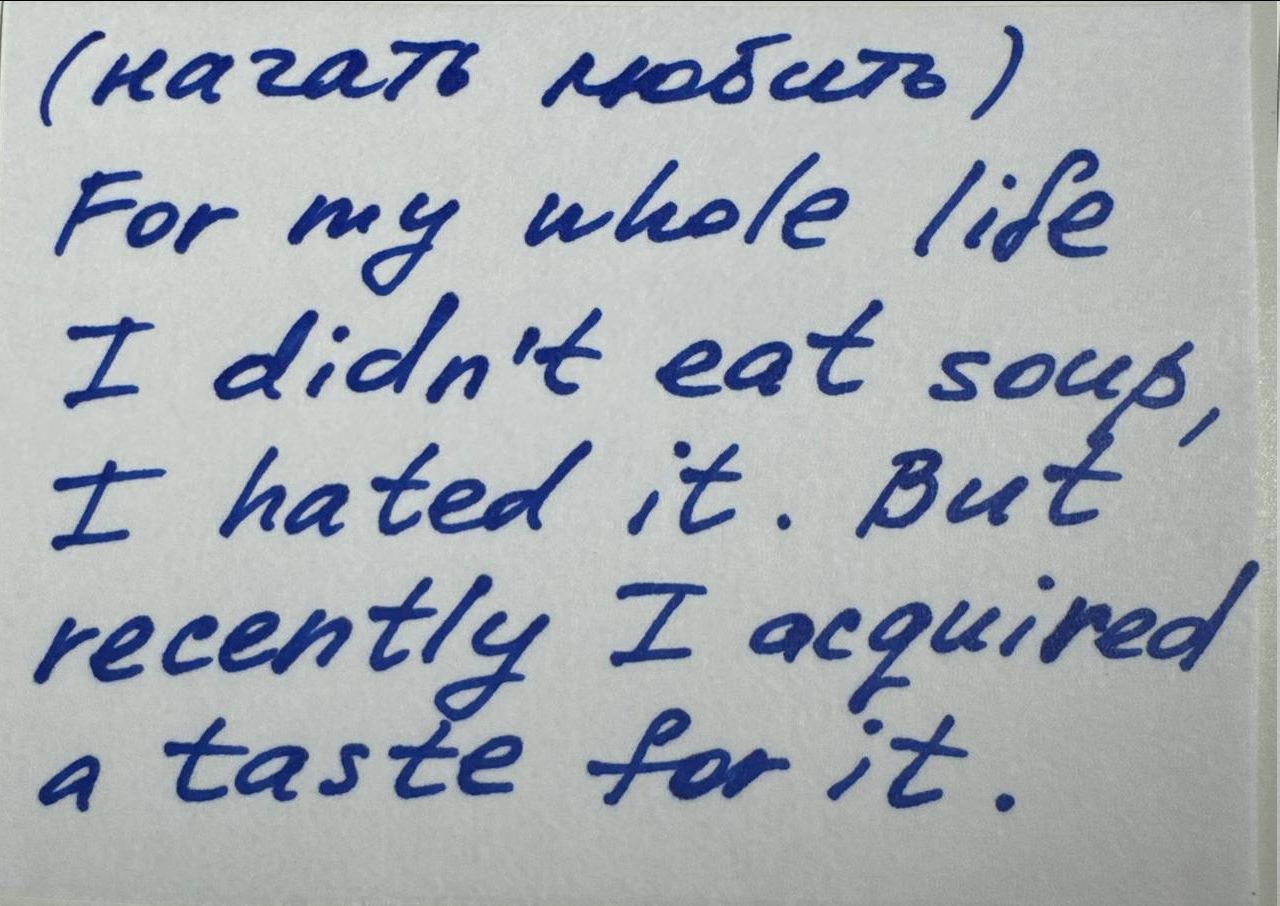 (начать любить)
For my whole life
I didn't eat soup,
I hated it. But
recently I acquired
a taste for it.